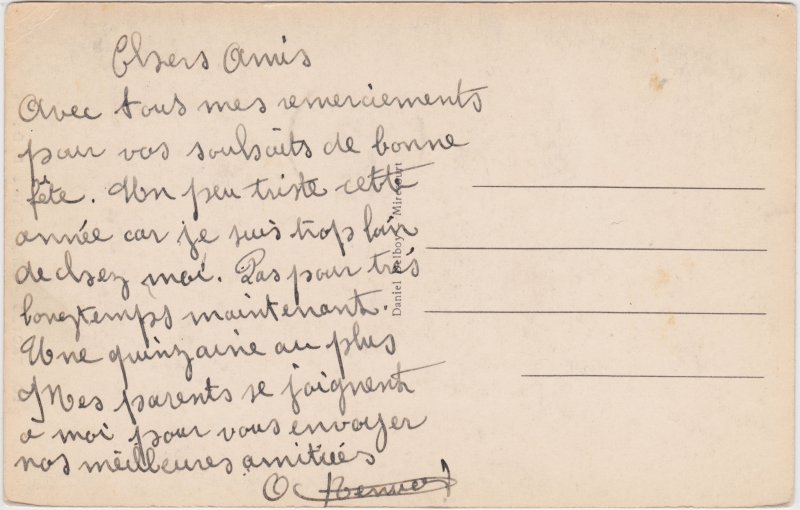 Chers Amis
Avec tous mes remerciements
pour vos souhaits de bonne
fête. Un peu triste cette
année car je suis trop loin
de chez moi. Pas pour très
longtemps maintenant.
Une quinzaine au plus
Mes parents se joignent
à moi pour vous envoyer
nos meilleures amitiées
O
Daniel Delboy - Mirecourt